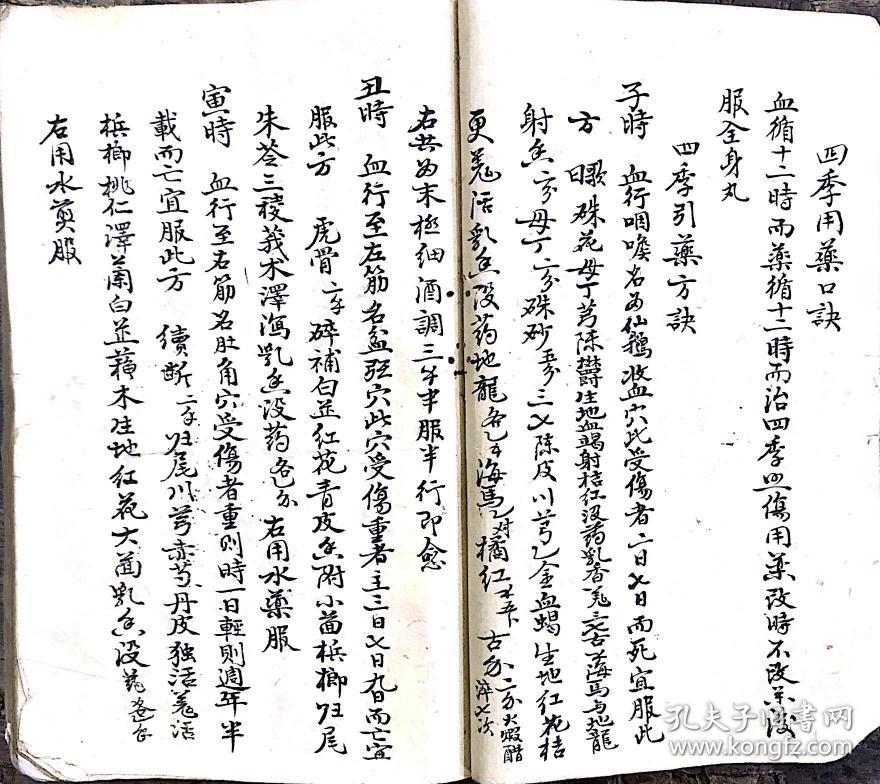 四季用藥口訣
血循十二時而藥循十二時而治四季 傷用藥改時不改
服全身丸
四季引藥方訣
子時 血行咽喉名為仙鵝 血穴此受傷者一日七日而死宜服此
方 歌 硃 花 母丁芎陳欝生地血竭射桔紅没药乳香羌 古海馬与地龍
射香 母丁 硃砂 三七陳皮川芎 血竭生地红花桔
更羌活乳香没药地龍各 海馬 对橘红 古 火煅醋淬七次
右共為末極细酒調三 半服半行即愈
丑時 血行至左筋名盆弦穴此穴受傷重者主三日七日九日而亡宜
服此方 虎骨 碎補白芷红花青皮香附小茴槟榔归尾
朱苓三稜莪术澤瀉乳香没药各 右用水藥服
寅時 血行至右筋名肚角穴受傷者重则時一日輕则週年半
載而亡宜服此方 續断 归尾川芎赤芍丹皮独活羌活
槟榔桃仁澤蘭白芷蘓木生地红花大茴乳香没药各
右用水煎服
孔夫子旧书网
www.kongfz.com